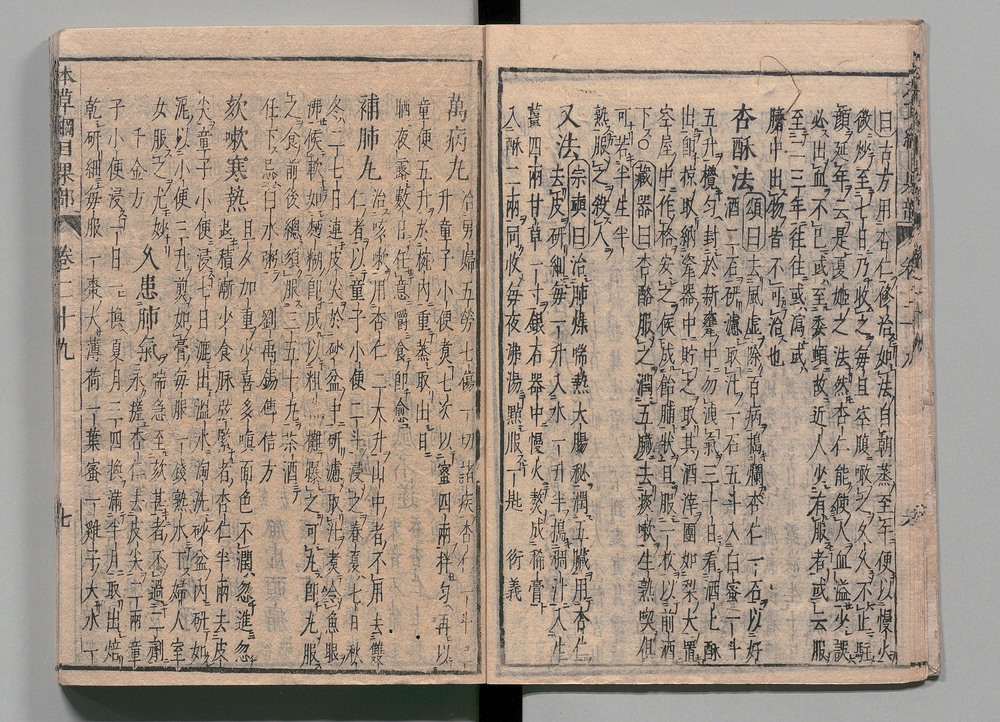 曰古方用杏仁修治如法自朝蒸至午便以慢火
微炒至七日乃收之每旦空腹啖之久久不止駐
顔延年云是夏姬之法然杏仁能使人血溢少誤
必出血不已或至委頓故近人少有服者或云服
至二三年往往或瀉或
臍中出物者不可治也
杏酥法 頌曰去風虚除百病搗爛杏仁一石以好
酒二石研濾取汁一石五斗入白蜜一斗
五升攪匀封於新甕中勿洩氣三十日看酒上酥
出即掠取納瓷器中貯之取其酒滓團如梨大置
空屋中作格安之候成飴脯狀旦服一枚以前酒
下 藏器曰杏酪服之潤五臟去痰嗽生熟喫俱
可若半生半
熟服之殺人
又法 宗奭曰治肺燥喘熱大腸秘潤五臟用杏仁
去皮研細毎一升入水一升半搗稠汁入生
薑四兩甘草一寸銀石器中慢火熬成稀膏
入酥二兩同收毎夜沸湯點服一匙 衍義
萬病丸 治男婦五勞七傷一切諸疾杏仁一斗二
升童子小便煮七次以蜜四兩拌匀再以
童便五升於椀內重蒸取出日
晒夜露數日任意嚼食即愈
補肺丸 治咳嗽用杏仁二大升山中者不用去雙
仁者以童子小便二斗浸之春夏七日秋
冬二七日連皮尖於砂盆中研濾取汁煮令魚眼
沸候軟如麪糊即成以粗布攤曝之可丸即丸服
之食前後總須服三五十丸茶酒
任下忌白水粥 劉禹錫傳信方
欬嗽寒熱 旦夕加重少喜多嗔面色不潤忽進忽
退積漸少食脉弦緊者杏仁半兩去皮
尖童子小便浸七日漉出溫水淘洗砂盆內研如
泥以小便三升煎如膏每服一錢熟水下婦人室
女服之尤妙
千金方 久患肺氣 喘急至欬甚者不過二劑
永瘥杏仁去皮尖二兩童
子小便浸一日一換夏月三四換滿半月取出焙
乾研細毎服一棗大薄荷一葉蜜一雞子大水一
本草綱目果部 卷二十九 七